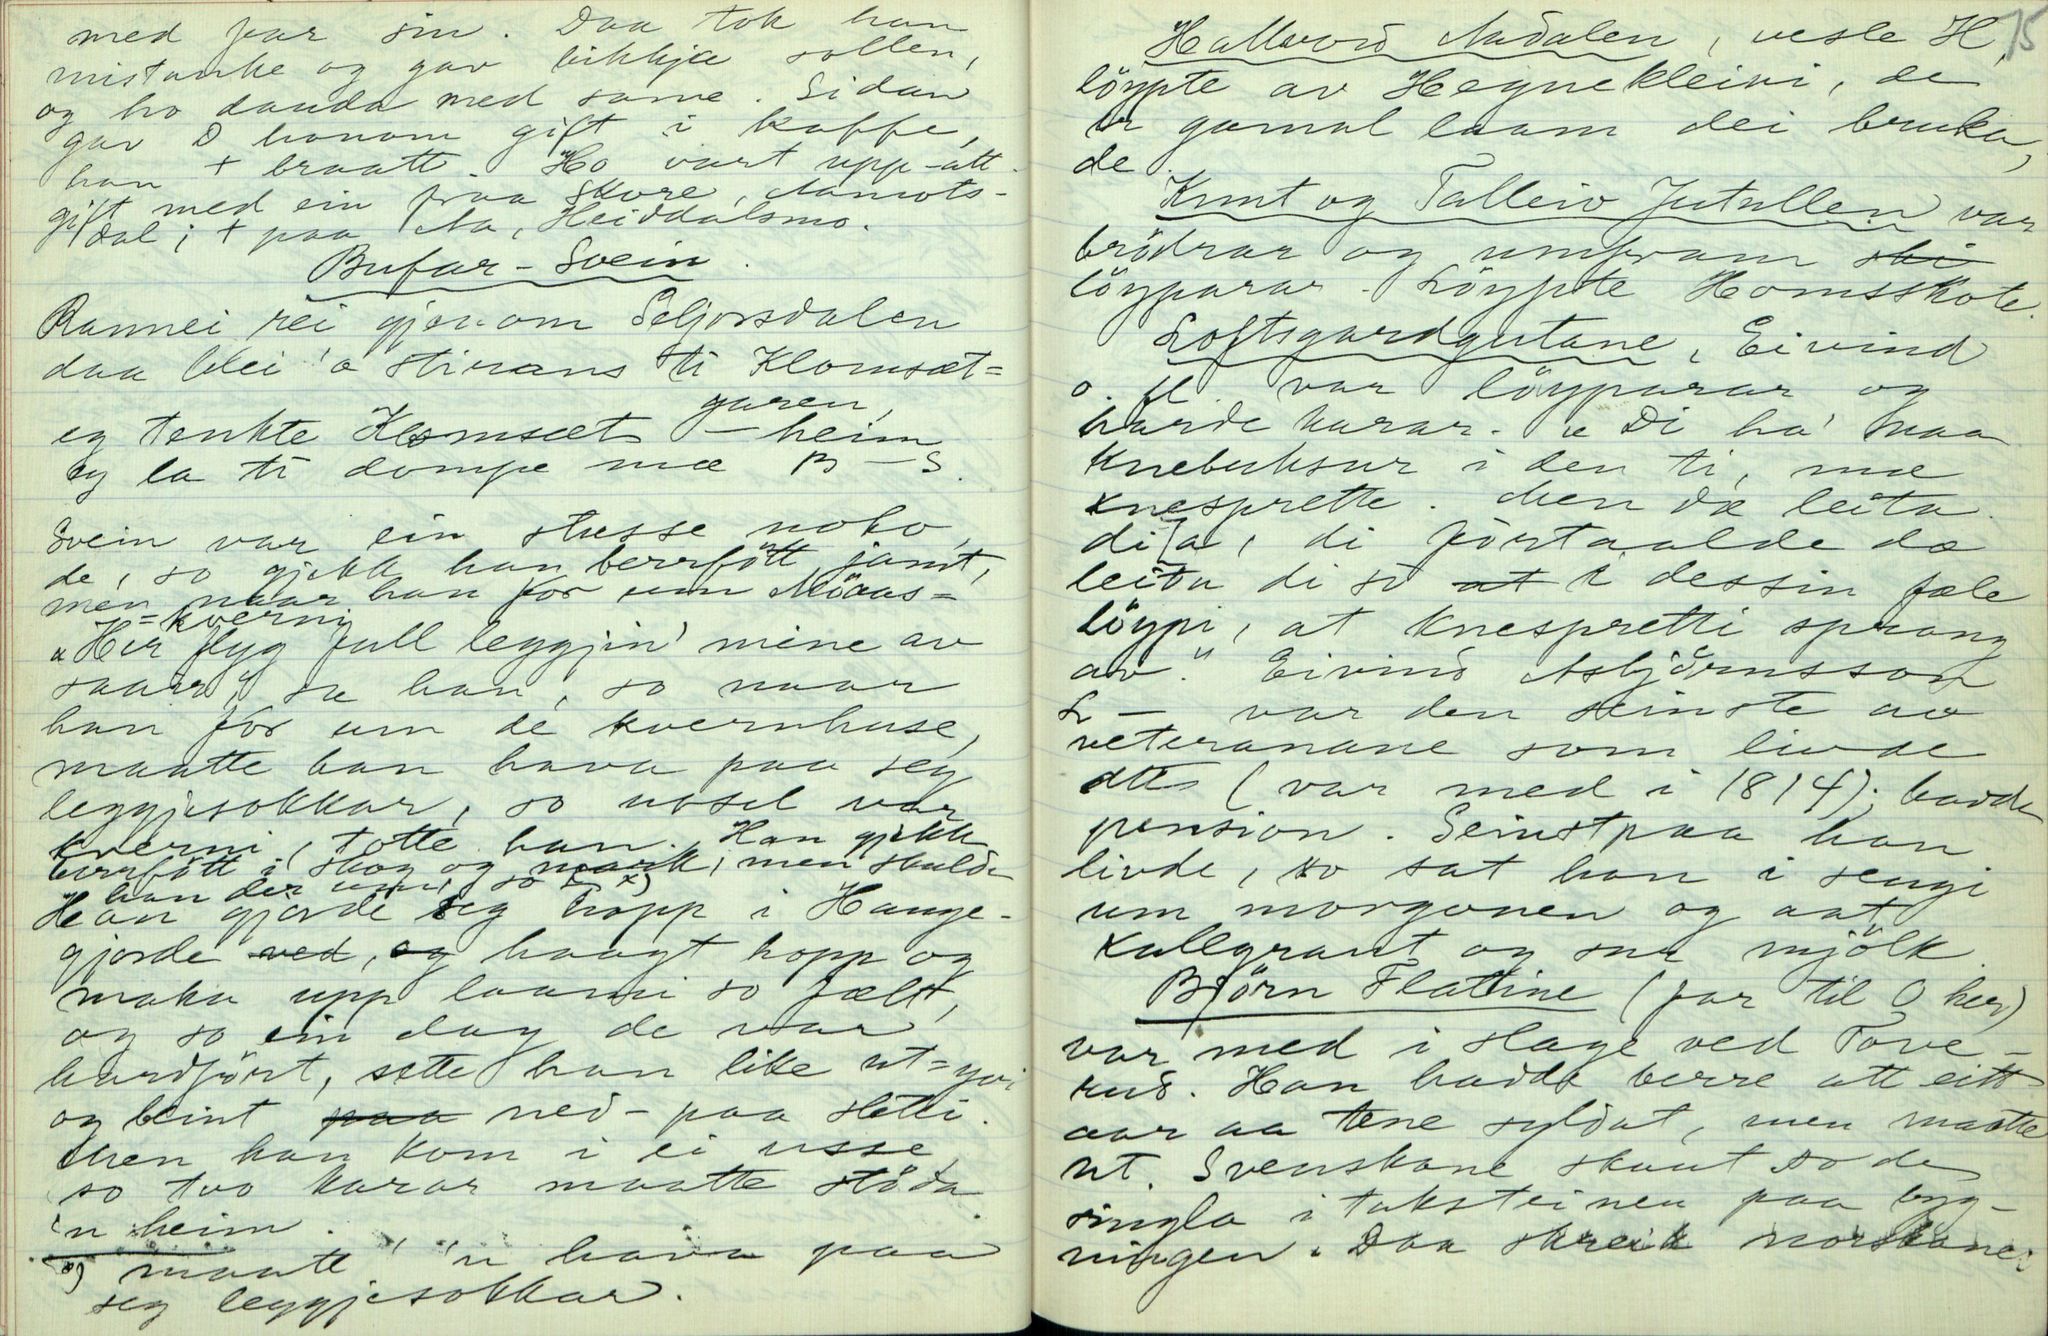 med far sin. Daa tok han
mistanke og gav bikkja sollen,
og ho dauda med same. Sidan
gav D honom gift i kaffe,
han + braatt. Ho vart upp-att
gift med ein fraa Skore, Aamots-
dal; + paa Aa, Heiddalsmo.
Bufar-Svein.
Rannei rei gjenom Seljorsdalen
daa blei 'a stirans ti Klomsæt=
garen,
eg tenkte Klomsæt – heim
eg la ti dompe mæ B – S.
Svein var ein stusse noko,
de, so gjekk han berrføtt jamt,
men naar han for um Möaas=
=kverni
"Her flyg full leggjin' mine av
saar", sa han, so naar
han for um de kvernhuse,
maatte han hava paa seg
leggjesokkar, so usæl var
kverni, totte han. Han gjekk
berrføtt i skog og mark, men skulde
han der um, so x)
Han gjorde seg hopp i Hauge-
gjorde ved, og haagt hopp og
maka upp laami so fælt,
og so ein dag de var
hardført, sette han like ut=yvi
og beint paa ned- paa sletti.
Men han kom i ei usse
so two karar maatte stöda
'n heim.
x) maatt' 'n hava paa
seg leggjesokkar.
15
Hallvord Aadalen, vesle H,
löypte av Hegnekleivi, de
er gamal laam dei bruka,
de.
Knut og Talleiv Jutullen var
brödrar og umfram ski
löyparar. Löypte Homsskote.
Loftsgardgutane, Eivind
o. fl. var löyparar og
harde karar. "Di ha' maa
knebuksur i den ti, mæ
knesprette. Men dæ leita
di a, di fortaalde dæ
leita di so at i dessin fæle
löypi, at knespretti sprang
av." Eivind Asbjörnsson
L – var den seinste av
veteranane som livde
att (var med i 1814); hadde
pension. Seinstpaa han
livde, so sat han i sengi
um morgonen og aat
kallgraut og sur mjölk.
Björn Flatine (far til O her)
var med i slage ved Tove-
rud. Han hadde berre att eitt
aar aa tene syldat, men maatte
ut. Svenskane skaut so de
singla i taksteinen paa byg-
ningen. Daa skreik norskane: